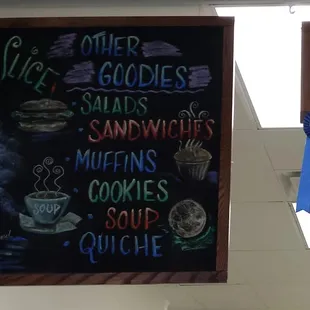 SLICE
OTHER
GOODIES
• SALADS
• SANDWICHES
• MUFFINS
• COOKIES
• SOUP
• QUICHE
SOUP